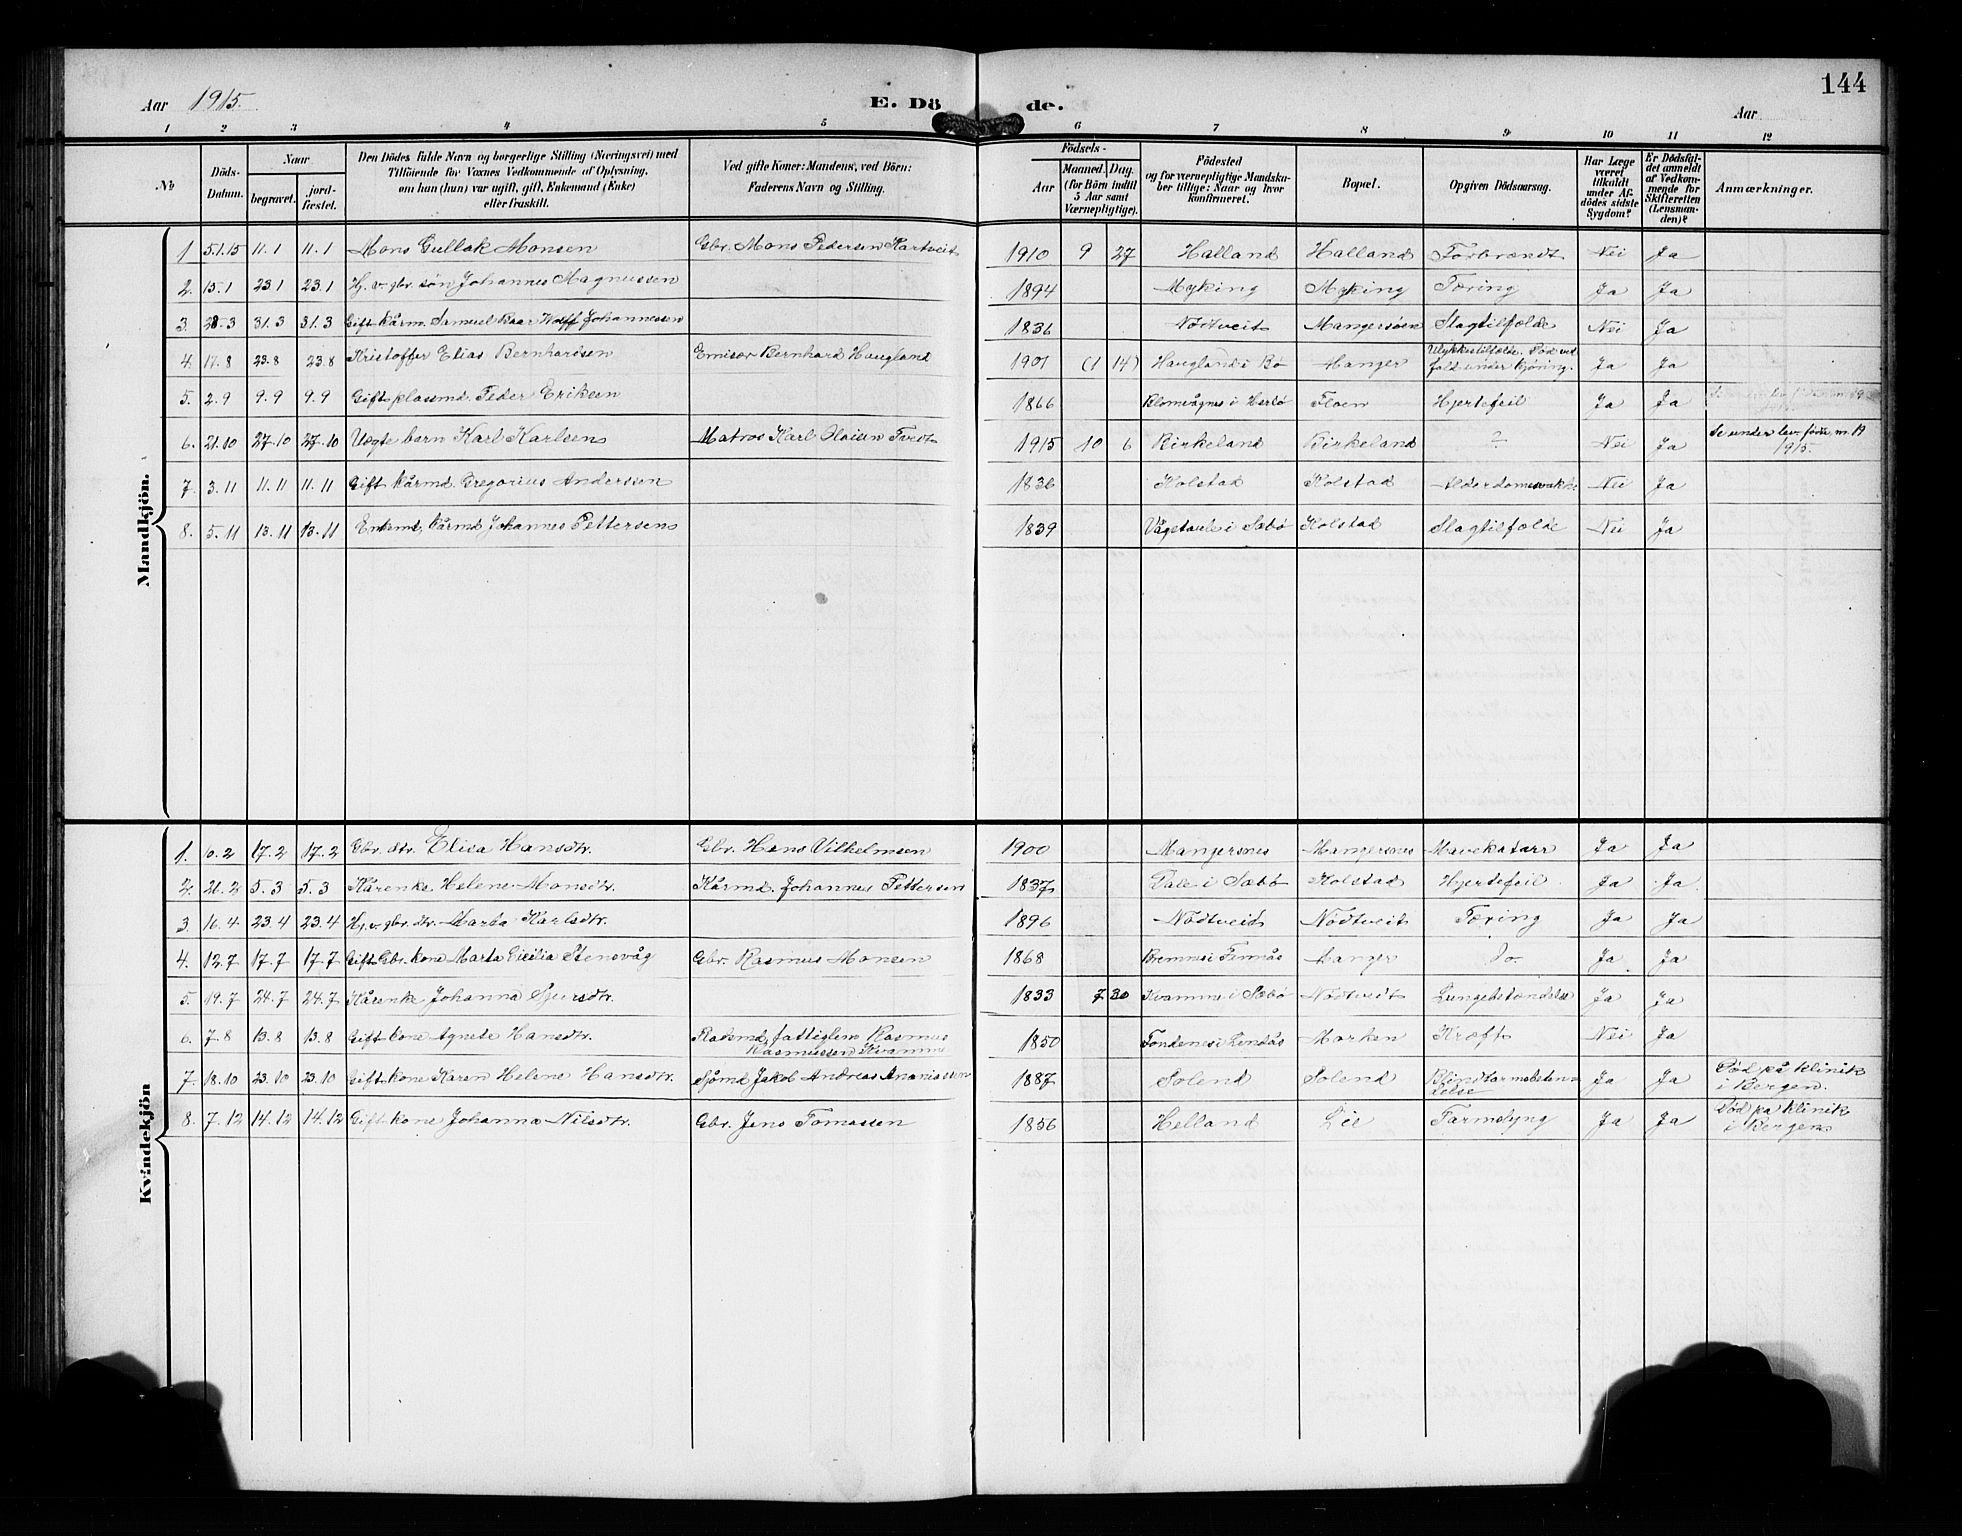 144
Aar 1915.
E. Dö de.
Aar
1 2 3 4 5 6 7 8 9 10 11 12
No
Döds-
Datum.
Naar
begravet.
jord-
fæstet.
Den Dödes fulde Navn og borgerlige Stilling (Næringsvei) med
Tilföiende for Voxnes Vedkommende af Oplysning,
om han (hun) var ugift, gift, Enkemand (Enke)
eller fraskilt.
Ved gifte Koner: Mandens, ved Börn:
Faderens Navn og Stilling.
Födsels-
Aar
Maaned. Dag.
(for Börn indtil
5 Aar samt
Værnepligtige).
Födested
og for værnepligtige Mandska-
ber tillige: Naar og hvor
konfirmeret.
Bopæl.
Opgiven Dödsaarsag.
Har Læge
været
tilkaldt
under Af-
dödes sidste
Sygdom?
Er Dödsfal-
det anmeldt
af Vedkom-
mende for
Skifteretten
(Lensman-
den)?
Anmærkninger.
Mandkjön.
1 5.1.15 11.1 11.1 Mons Gullak Monsen Gbr. Mons Pedersen Hartveit 1910 9 27 Halland Halland Forbrændt Nei Ja
2. 13.1 23.1 23.1 Hj. v. gbr. søn Johannes Magnussen 1894 Myking Myking Tæring Ja Ja
3. 28.3 31.3 31.3 Gift kårm. Samuel Kaar Wolff Johannessen 1836 Nödtveit Mangersöen Slagtilfælde Nei Ja
4. 17.8 23.8 23.8 Kristoffer Elias Bernhardsen Emisær Bernhard Haugland 1901 (1 14) Haugland i Bö Manger Ulykkestilfælde. Död ved
fald under kjöring. Ja Ja
5. 2.9 9.9 9.9 Gift plassmd. Peder Eriksen 1866 Blomvågnes i Herlö Floen Hjertefeil Ja Ja
6. 21.10 27.10 27.10 Uægte barn Karl Karlsen Matros Karl 1915 10 6 Birkeland Birkeland ? Nei Ja Se under lev. fødte, nr. 19
1915.
7. 3.11 11.11 11.11 Gift kårmd. Gregorius Anderssen 1836 Kolstad Kolstad Nei Ja
8. 5.11 13.11 13.11 Enkemd. kårmd Johannes Pettersen 1839 Vågetule i Sæbø Kolstad Slagtilfælde Nei Ja
Kvindekjön
1. 10.2 17.2 17.2 Gbr. dtr. Elisa Hansdtr. Gbr. Hans Vilhelmsen 1900 Mangersnes Mangersnes Mavekatarr Ja Ja
2. 26.2 5.3 5.3 Kårenke Helene Monsdtr. Kårmd. Johannes Pettersen 1837 Dale i Sæbø Kolstad Hjertefeil. Ja Ja
3 16.4 23.4 23.4 Hj. v. gbr. dtr. Marta Karlsdtr. 1896 Nödtveit Nödtveit Tæring Ja Ja
4. 12.7 17.7 17.7 Gift Gbr. kone Marta Cicilia Stensvåg Gbr. Rasmus Monsen 1868 Bremnes i Finnås Manger Do Ja Ja
5. 19.7 24.7 24.7 Kårenke Johanna Sjursdtr. 1833 7 30 Kvamme i Sæbø Nödtveit Lungebetændelse Ja Ja
6. 7.8 13.8 13.8 Gift kone Agnete Hansdtr. fattiglem Rasmus
Rasmussen Kvamme 1850 Fondenes i Lindås Marken Kræft Nei Ja
7. 18.10 23.10 23.10 Gift kone Karen Helene Hansdtr. Sjömd Jakob Andreas Ananiassen 1887 Solend Solend Blindtarmsbetæn-
delse Ja Ja Död på klinik
i Bergen.
8. 7.12 14.12 14.12 Gift kone Johanna Nilsdtr. Gbr. Jens Tomassen 1856 Helland Lie Tarmslyng Ja Ja Död på klinik
i Bergen